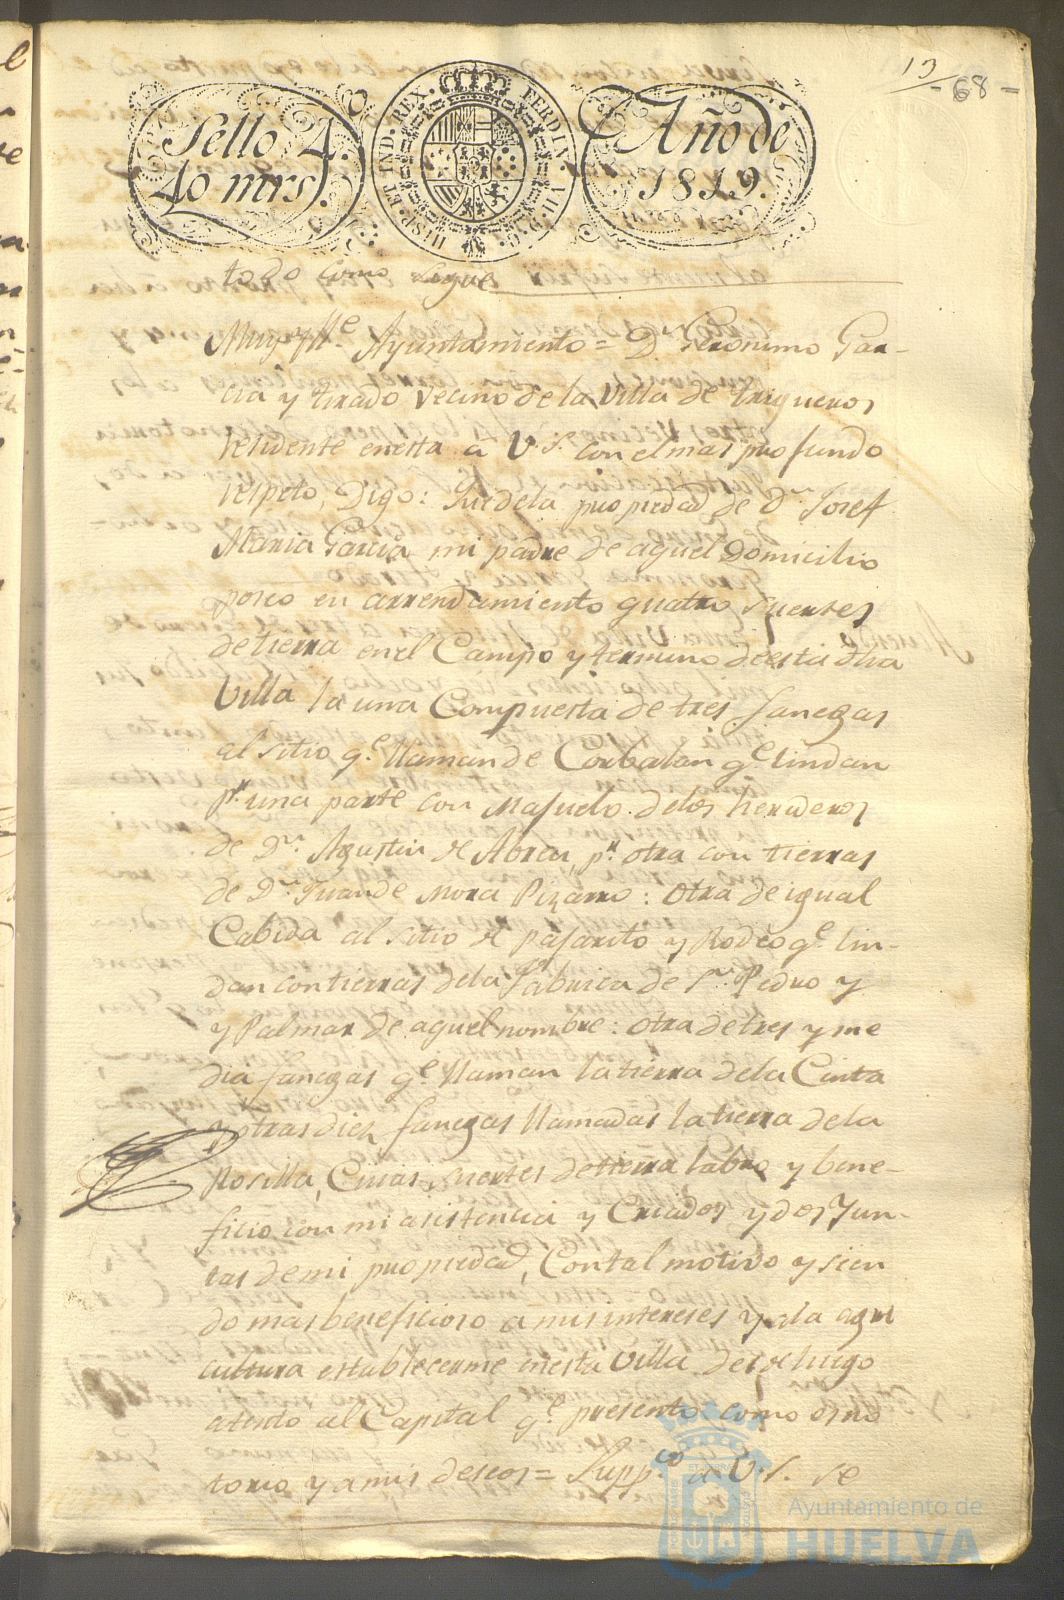 13
- 68 -
Sello 4.
40 mrs.
HISP. ET IND. REX. FERDIN. VII. D. G.
Año de
1819.
todo como sigue
Muy Ylle. Ayuntamiento = Dn. Geronimo Gar-
cia y tirado vecino de la Villa de trigueros
residente en esta a V.S. con el mas profundo
respeto, Digo: Que de la propiedad de Dn. Josef
Maria Garcia mi padre de aquel Domicilio
poseo en arrendamiento quatro suertes
de tierra en el Campo y termino de esta dha
Villa la una Compuesta de tres fanegas
al sitio qe. llaman de Corbalan qe. lindan
pr. una parte con Majuelo de los herederos
de Dn. Agustin de Abreu, pr. otra con tierras
de Dn. Juan de Mora Pizarro: otra de igual
Cabida al sitio de Pajarito y Rodeo qe. lin-
dan con tierras de la Fabrica de Sn. Pedro y
y Palmar de aquel nombre: otra de tres y me
dia fanegas qe. llaman la tierra de la Cinta
y otras diez fanegas llamadas la tierra de la
Rosilla, Cuias suertes de tierra labro y bene-
ficio con mi asistencia y Criados y dos Yun-
tas de mi propiedad, Con tal motivo y sien
do mas beneficioso a mis intereses y a la agri
cultura establecerme en esta Villa desde luego
atento al Capital qe. presento como es no
torio y a mis deseos = Suppco. a V.S. se
Ayuntamiento de
HUELVA